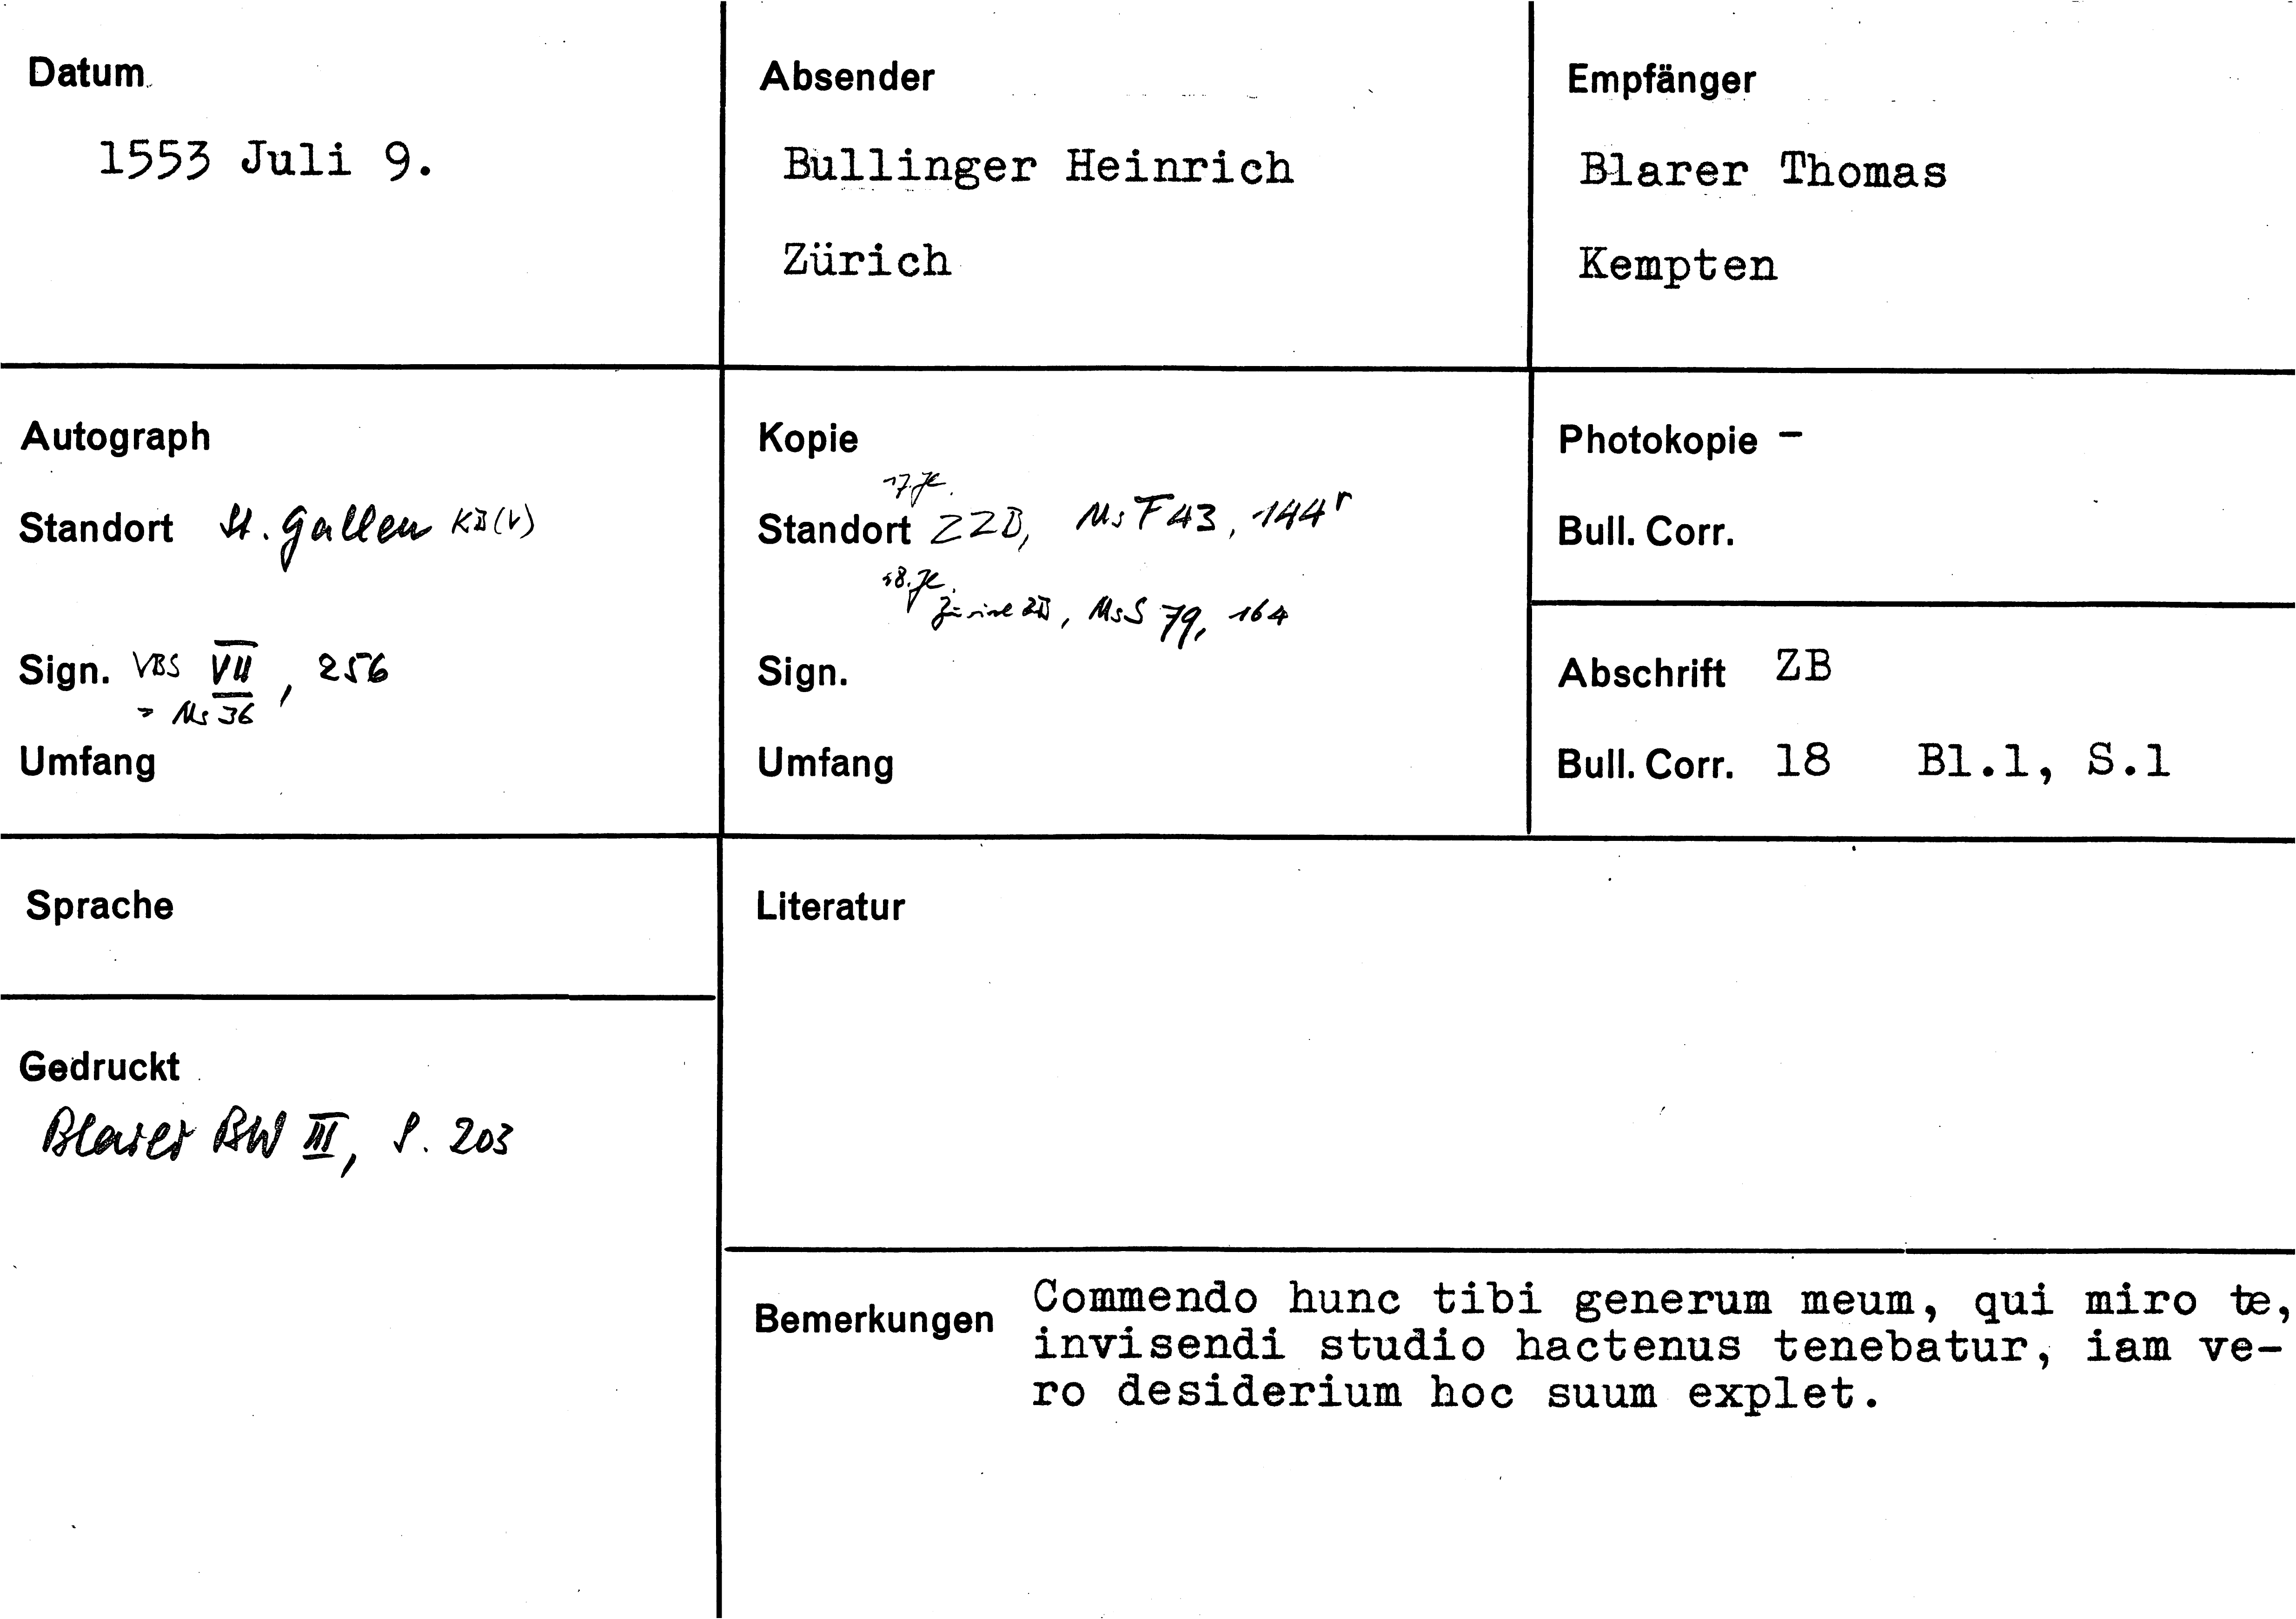 Datum
1553 Juli 9.
Absender
Bullinger Heinrich
Zürich
Empfänger
Blarer Thomas
Kempten
Autograph
Standort St. Gallen KB (V)
Sign. VBS VII, 256
= Ms 36
Umfang
Kopie
17. Jh.
Standort ZZB, Ms F 43, 144r
18. Jh.
Zürich ZB, Ms S 79, 164
Sign.
Umfang
Photokopie -
Bull. Corr.
Abschrift ZB
Bull. Corr. 18 Bl.1, S.1
Sprache
Literatur
Gedruckt
Blarer BW III, S. 203
Bemerkungen
Commendo hunc tibi generum meum, qui miro te,
invisendi studio hactenus tenebatur, iam ve-
ro desiderium hoc suum explet.